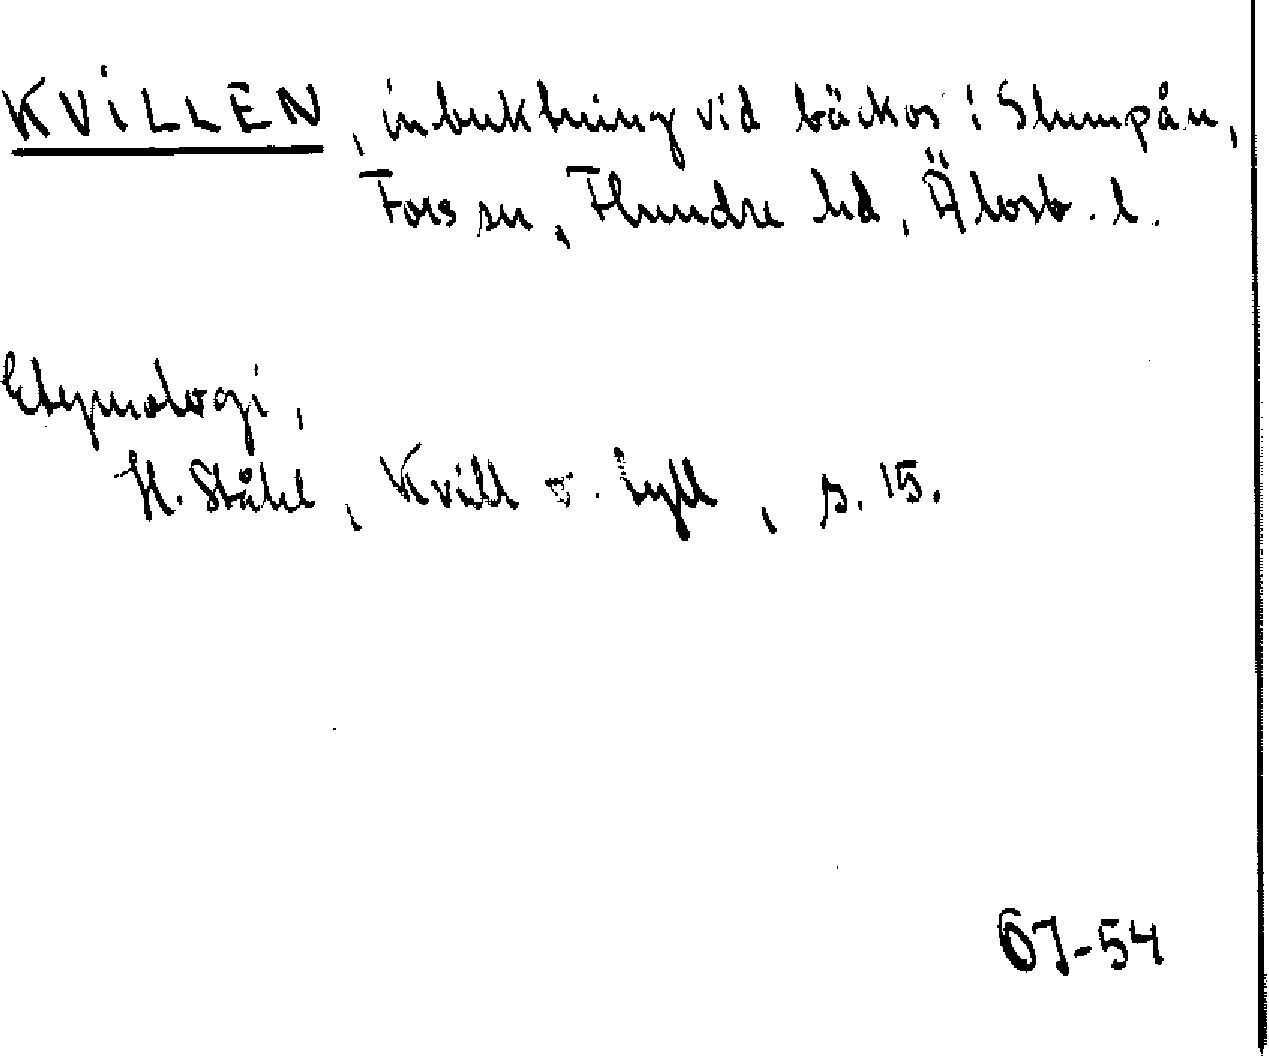 KVILLEN, inbuktning vid bäckos i Slumpån,
Fors sn, Flundre hd, Älvsb. l.
Etymologi,
H. Ståhl, Kvill o. Tyll, s. 15.
OJ-54